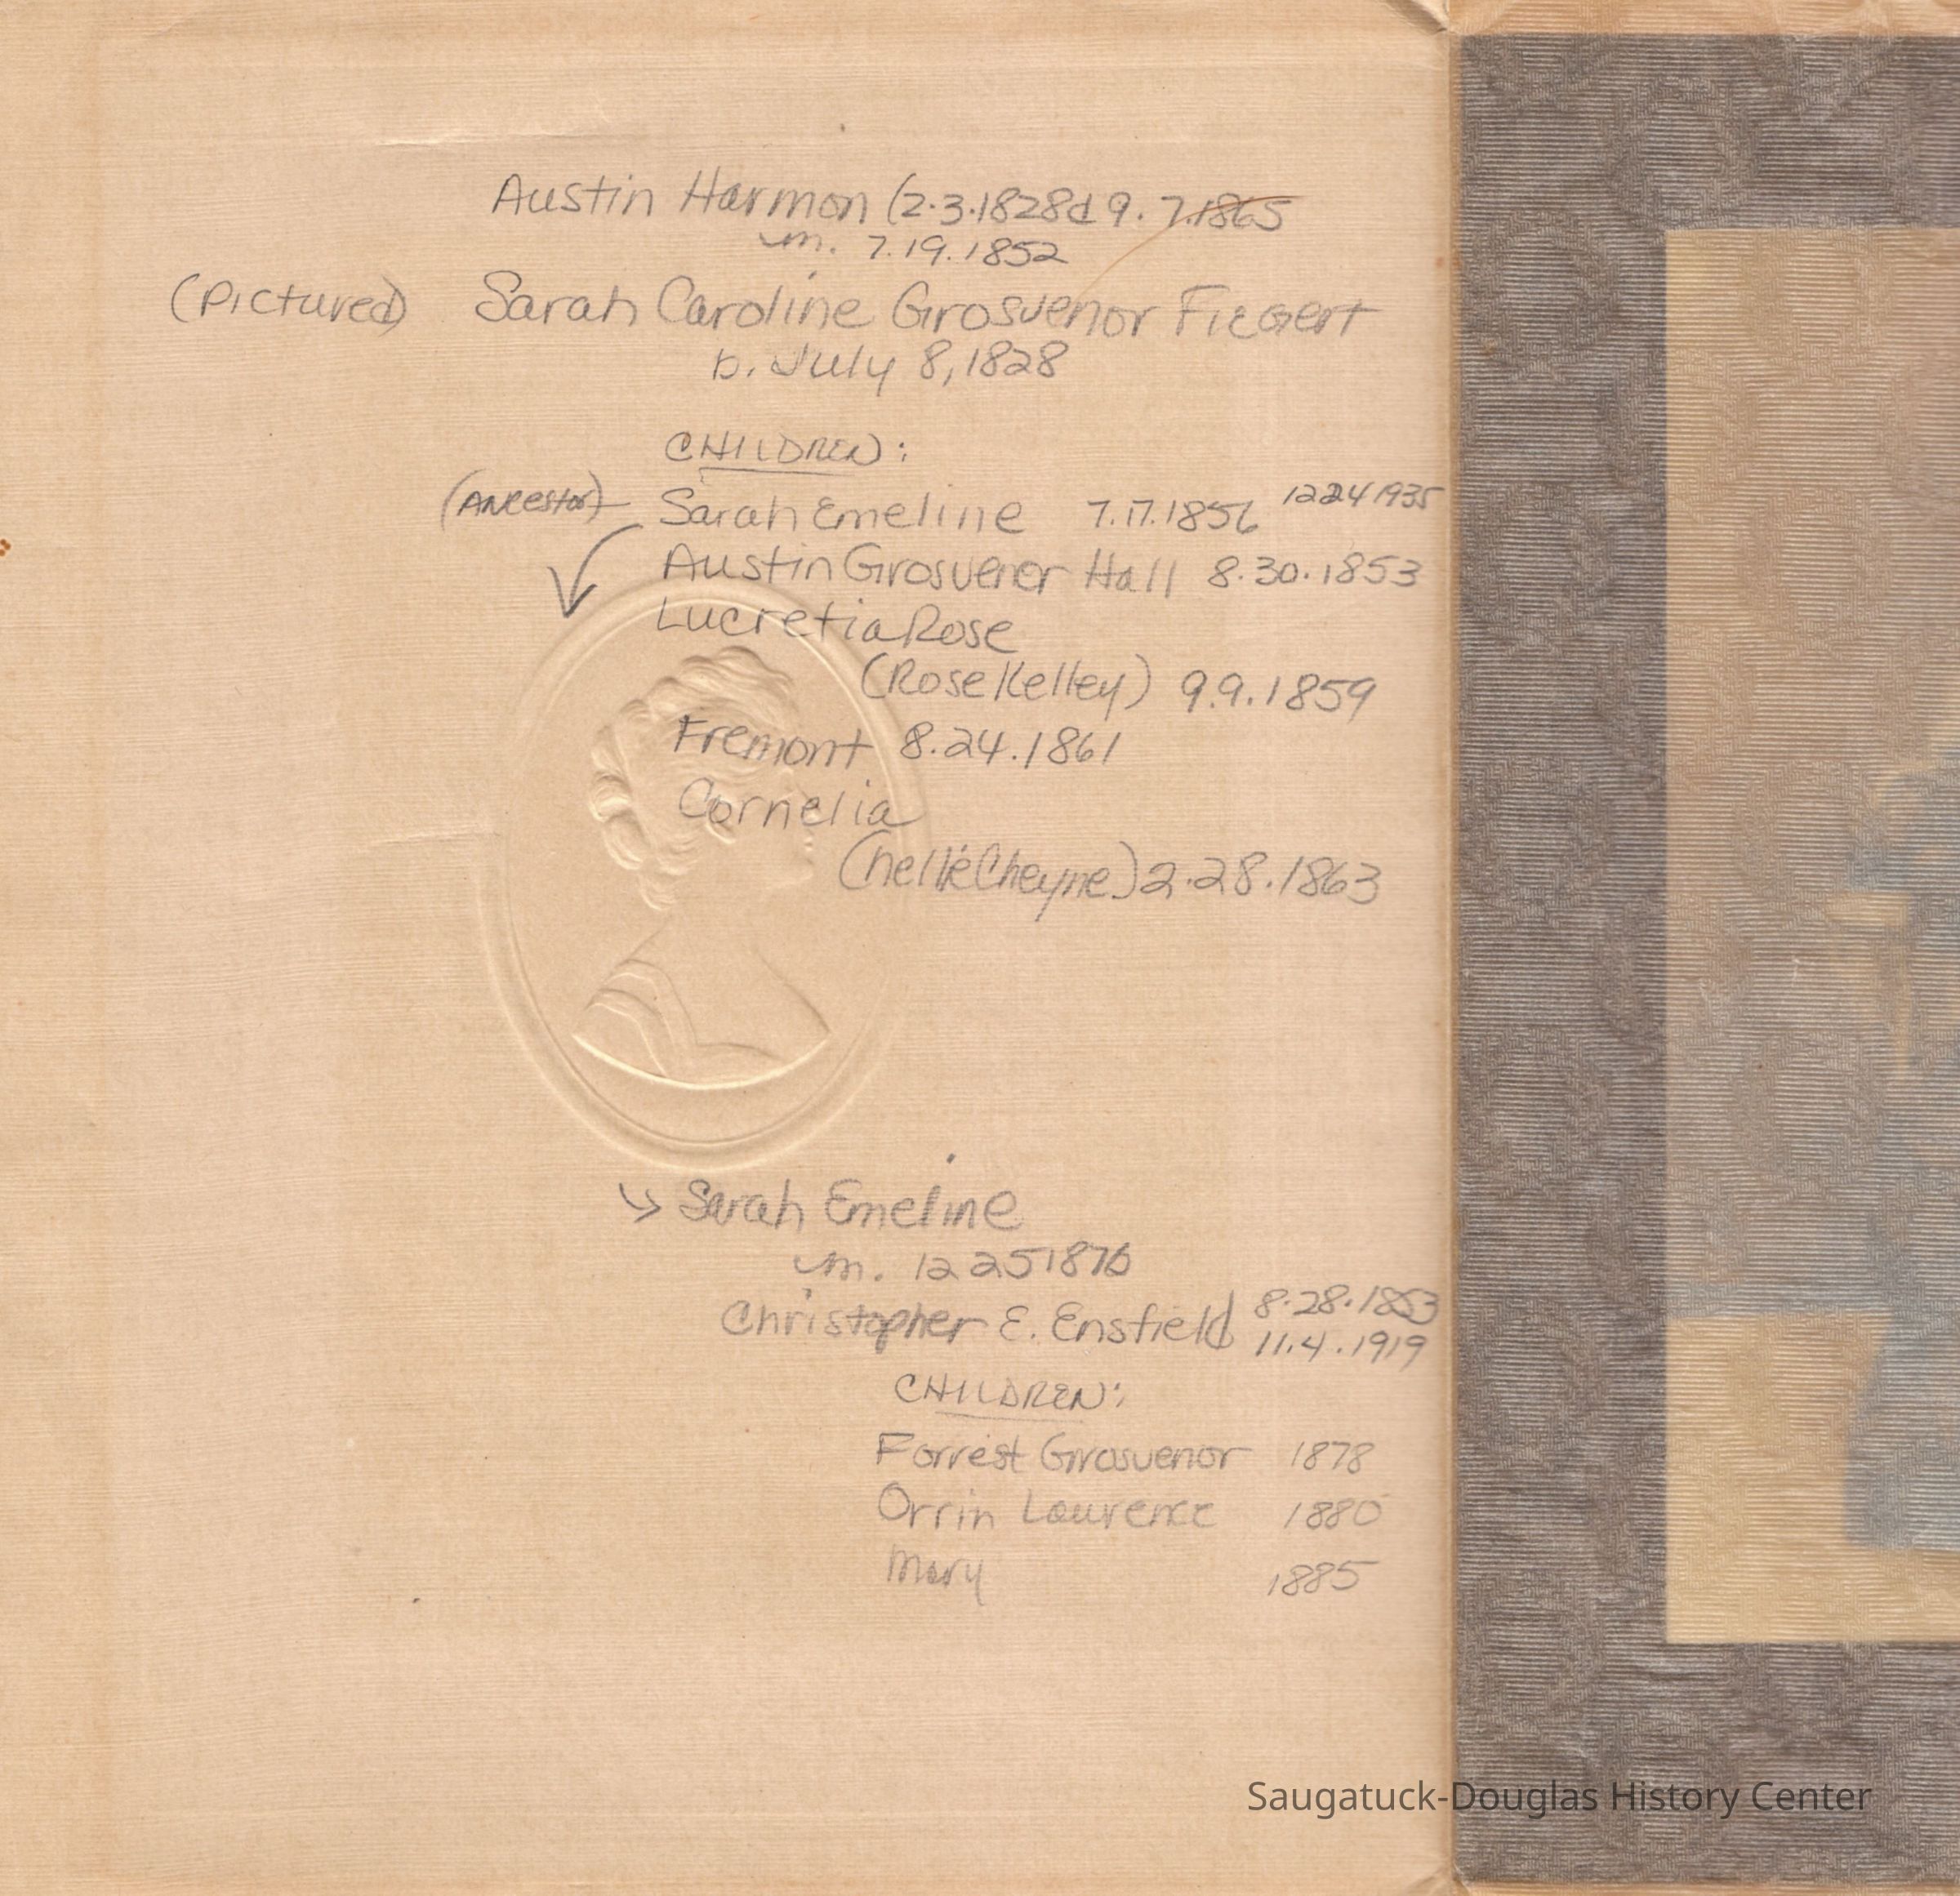 Austin Harmon (2.3.1828d 9.7.1865
m. 7.19.1852
(Pictured) Sarah Caroline Grosvenor Fiegert
b. July 8, 1828
CHILDREN:
(Ancestor) Sarah Emeline 7.17.1856 12241935
Austin Grosvenor Hall 8.30.1853
Lucretia Rose
(Rose Kelley) 9.9.1859
Fremont 8.24.1861
Cornelia
(nellie Cheyne) 2.28.1863
Sarah Emeline
m. 12 25 1876
Christopher E. Ensfield 8.28.1853
11.4.1919
CHILDREN:
Forrest Grosvenor 1878
Orrin Lawrence 1880
Mary 1885
Saugatuck-Douglas History Center